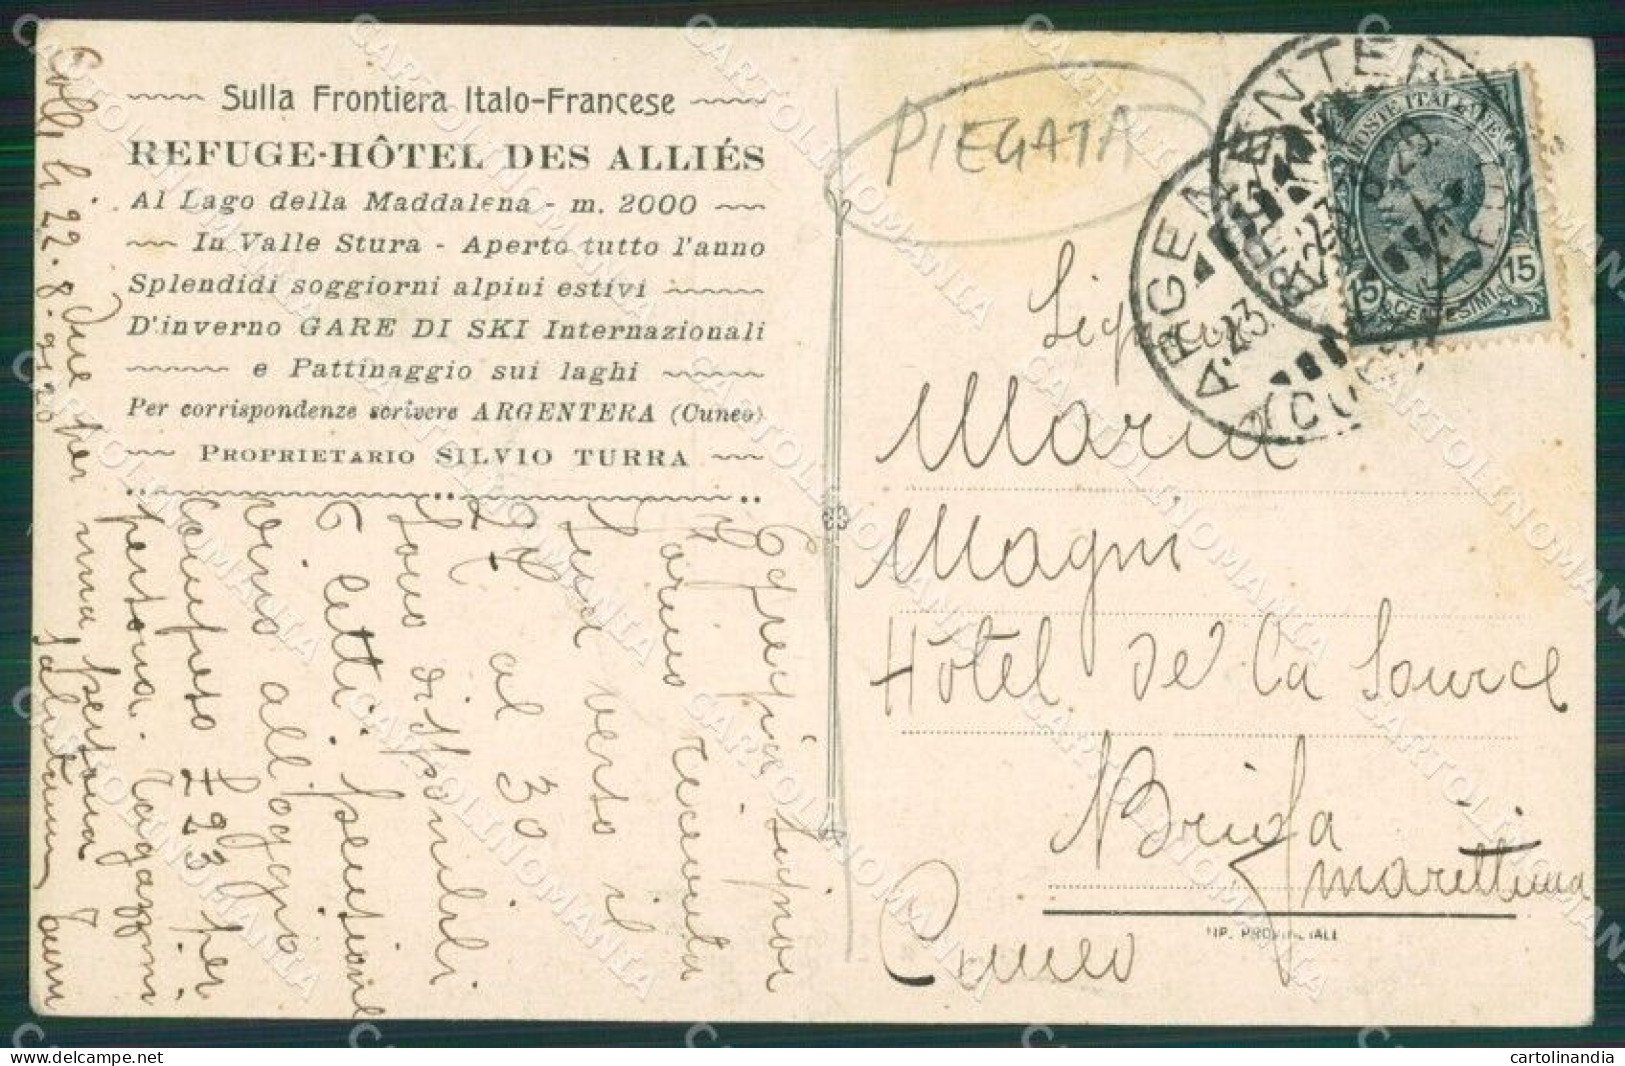 Sulla Frontiera Italo-Francese
REFUGE-HÔTEL DES ALLIÉS
Al Lago della Maddalena - m. 2000
In Valle Stura - Aperto tutto l'anno
Splendidi soggiorni alpini estivi
D'inverno GARE DI SKI Internazionali
e Pattinaggio sui laghi
Per corrispondenze scrivere ARGENTERA (Cuneo)
PROPRIETARIO SILVIO TURRA
PIEGATA
ARGENTERA
(CUNEO)
POSTE ITALIANE
15 CENTESIMI 15
Maria
Magni
Hôtel de la Source
Briga
marittima
Cuneo
TIP. PROVINCIALI
Egregio Signor
ricevuta
sua verso il
24 al 30
sono disponibili
6 letti. pensione
vino alloggio
compreso £ 23 per
persona. ragazzini
due per una persona
salutami
22.8.920
CARTOLINOMANIA
cartolinandia